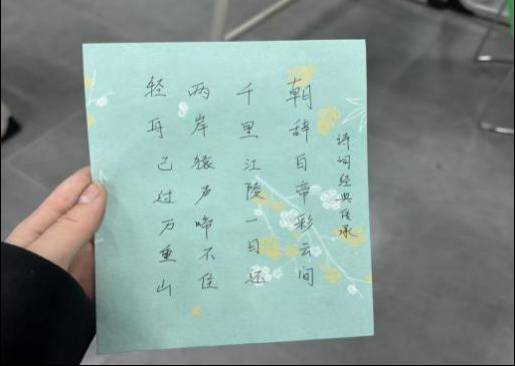 诗词经典传承
朝辞白帝彩云间
千里江陵一日还
两岸猿声啼不住
轻舟已过万重山